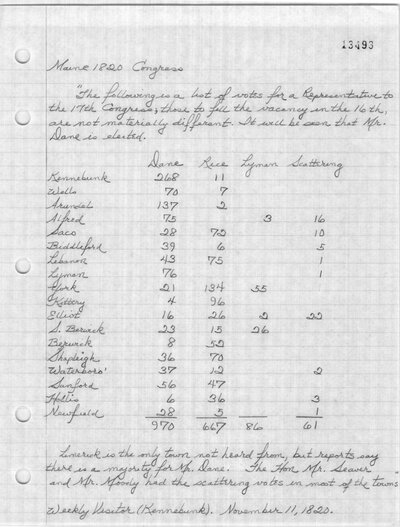 13493
Maine 1820 Congress
"The following is a list of votes for a Representative to
the 17th Congress; those to fill the vacancy in the 16th,
are not materially different. It will be seen that Mr.
Dane is elected.
Dane Rice Lyman Scattering
Kennebunk 268 11
Wells 70 7
Arundel 137 2
Alfred 75 3 16
Saco 28 72 10
Biddeford 39 6 5
Lebanon 43 75 1
Lyman 76 1
York 21 134 55
Kittery 4 96
Elliot 16 26 2 22
S. Berwick 23 15 26
Berwick 8 52
Shapleigh 36 70
Waterboro' 37 12 2
Sanford 56 47
Hollis 6 36 3
Newfield 28 5 1
970 667 86 61
Limerick is the only town not heard from, but reports say
there is a majority for Mr. Dane. The Hon Mr. Seaver
and Mr. Moody had the scattering votes in most of the towns"
Weekly Visitor (Kennebunk). November 11, 1820.